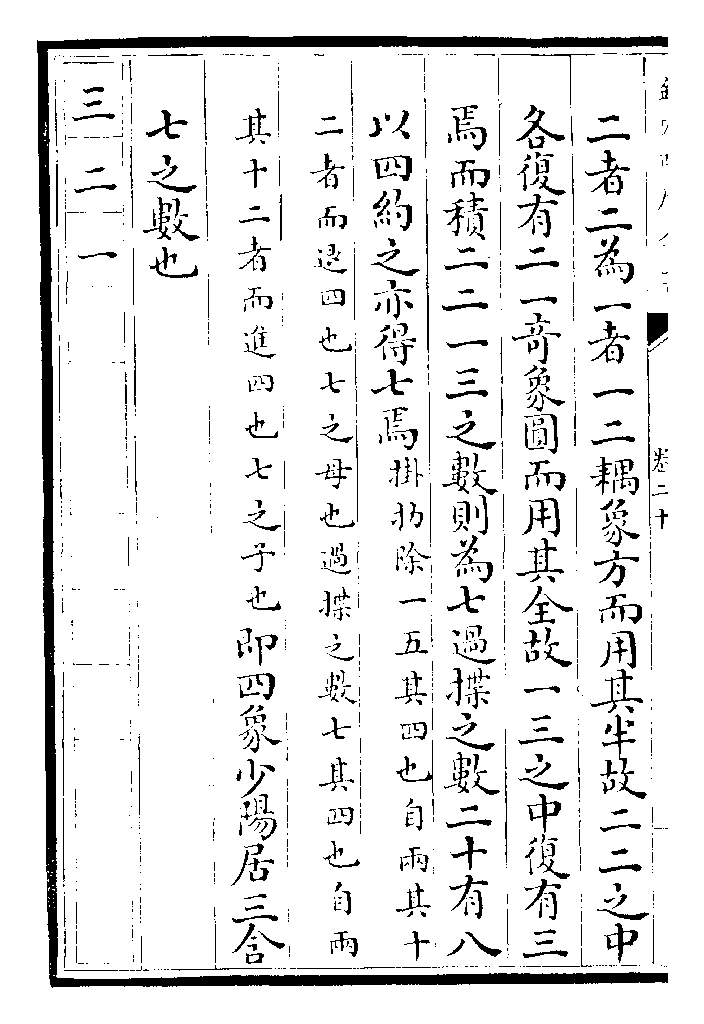 卷二十
二者二為一者一二耦象方而用其半故二二之中
各復有二一竒象圓而用其全故一三之中復有三
焉而積二二一三之數則為七過揲之數二十有八
以四約之亦得七焉掛扐除一五其四也自兩其十
二者而退四也七之母也過揲之數七其四也自兩
其十二者而進四也七之子也即四象少陽居三含
七之數也
三二一